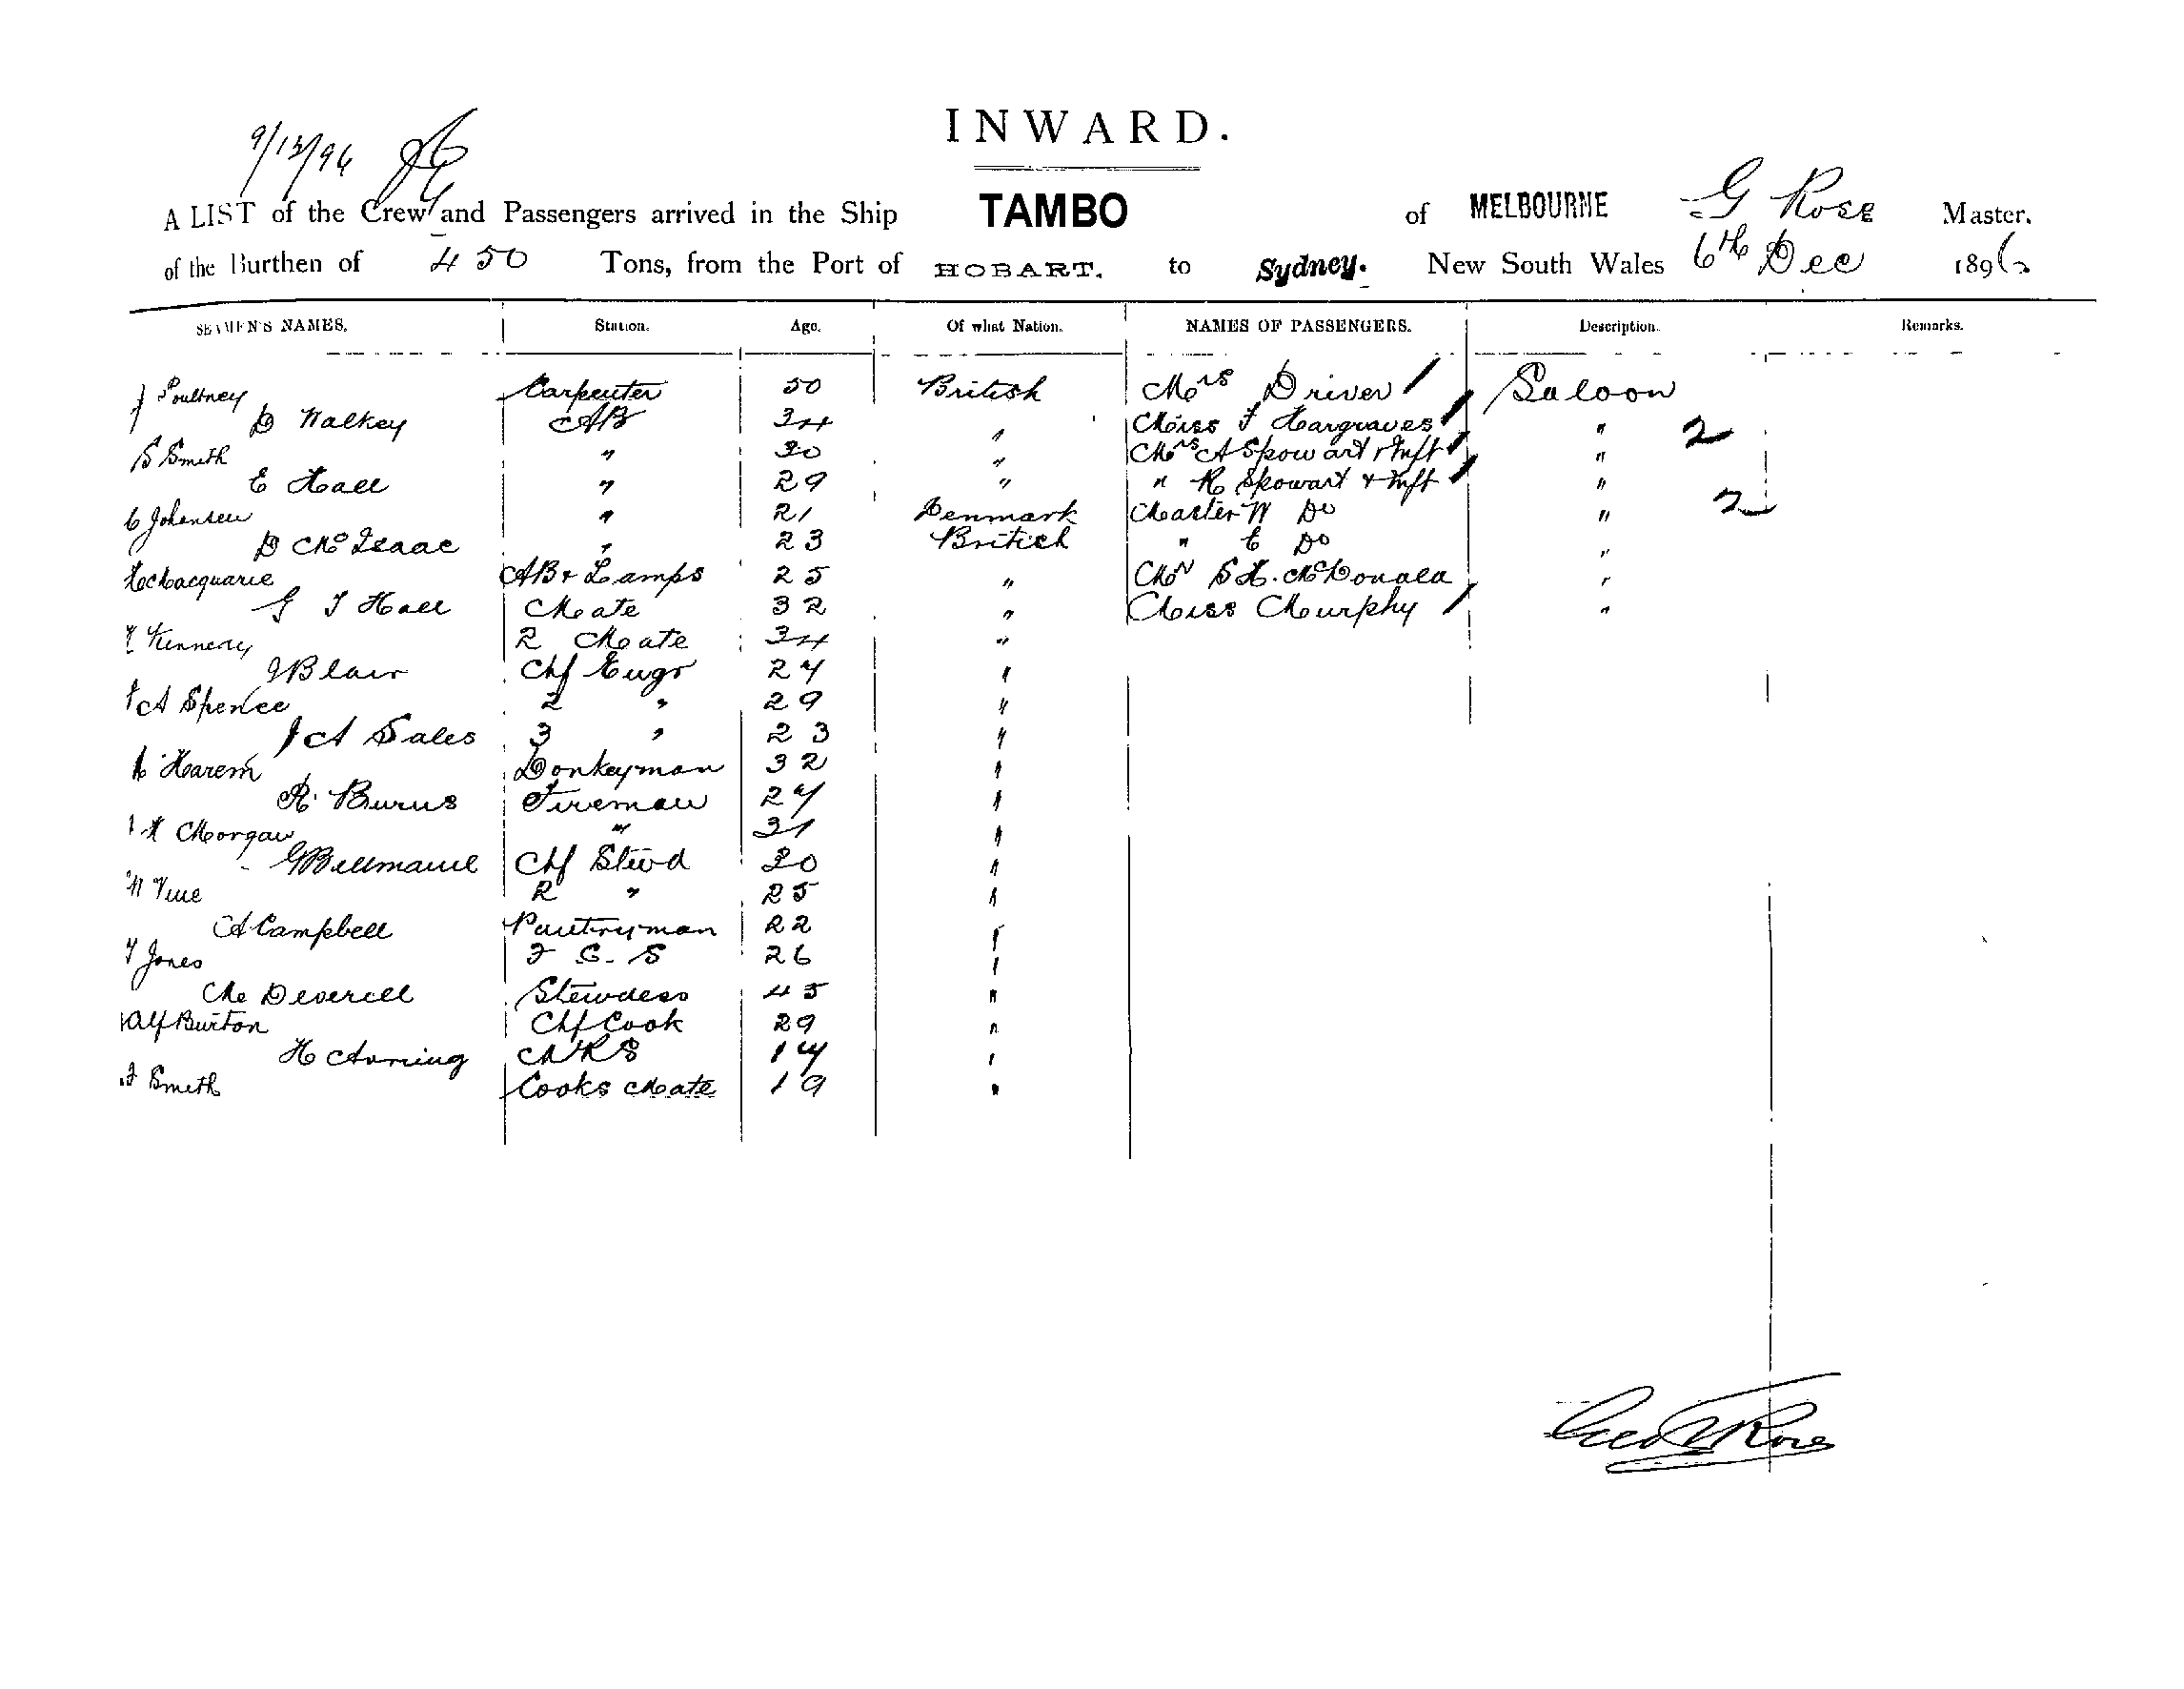 INWARD.
9/12/96
A LIST of the Crew and Passengers arrived in the Ship TAMBO of MELBOURNE G Rose Master.
of the Burthen of 450 Tons, from the Port of HOBART. to Sydney. New South Wales 6th Dec 1896
SEAMEN'S NAMES. Station. Age. Of what Nation. NAMES OF PASSENGERS. Description. Remarks.
J Poultney Carpenter 50 British Mrs Driver Saloon
D Walkey AB 34 " Miss F Hargraves " 2
S Smith " 30 " Mrs A Spowart & Inft "
E Hall " 29 " " R Spowart & Inft "
C Johansen " 21 Denmark Master W Do " 2
D McIsaac " 23 British " E Do "
H Macquarie AB & Lamps 25 " Mr S H. McDonald "
G T Hall Mate 32 " Miss Murphy "
Kennedy 2 Mate 34 "
J Blair Chf Engr 24 "
A Spence 2 " 29 "
J A Sales 3 " 23 "
Harem Donkeyman 32 "
R. Burns Fireman 24 "
Morgan " 31 "
G Bellmaine Chf Stewd 30 "
W Vine 2 " 25 "
A Campbell Pantryman 22 "
T Jones F. C. S 26 "
M Deverell Stewdess 45 "
Alf Burton Chf Cook 29 "
H Arning 14 "
F Smith Cooks Mate 19 "
Geo Rose